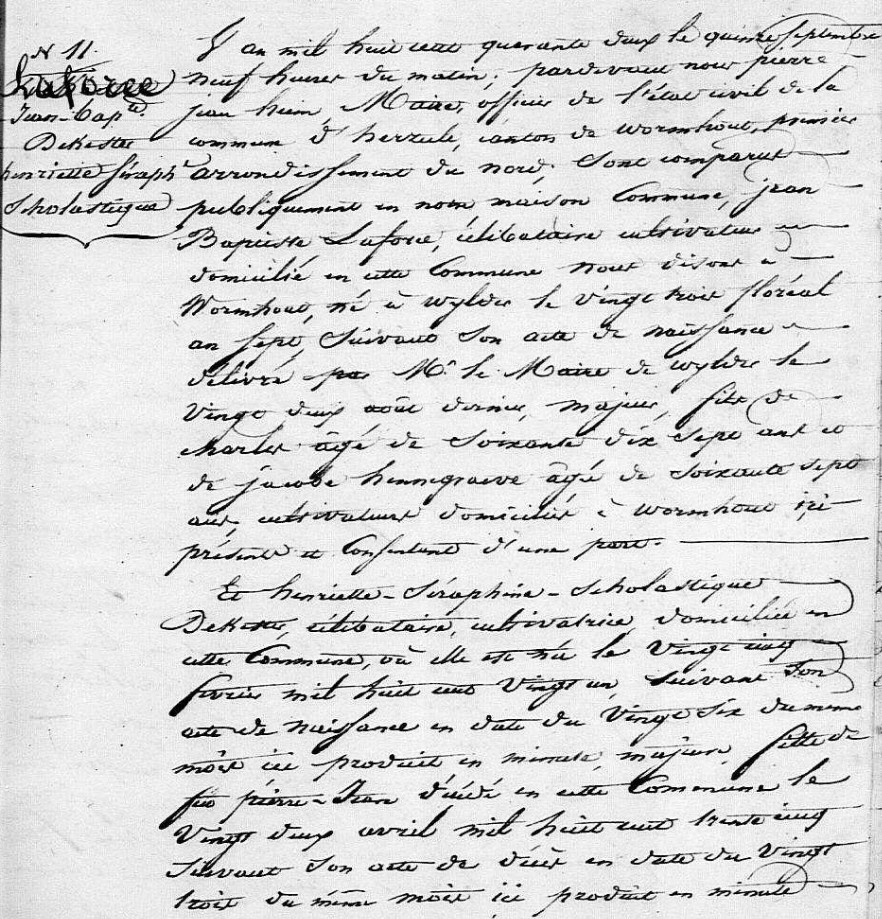 N 11.
Laforce
Jean-Bapte.
Dekester
henriette Séraphe
Scholastique
L'an mil huit cent quarante deux le quinze septembre
neuf heures du matin; pardevant nous pierre
jean hiem, Maire, officier de l'état civil de la
commune d'herzeele, canton de wormhout, premier
arrondissement du nord, Sont comparus
publiquement en notre maison Commune, jean
Baptiste Laforce, célibataire cultivateur
domicilié en cette Commune nous disons à
Wormhout, né à wylder le vingt trois floréal
an sept, Suivant Son acte de naissance
délivré par Mr. le Maire de wylder le
vingt deux août dernier, majeur, fils de
charles âgé de Soixante dix sept ans et
de jacobe hennegraeve âgée de Soixante sept
ans, cultivateurs domiciliés à wormhout ici
présents et Consentant d'une part.
Et henriette-Séraphine-Scholastique
Dekester, célibataire, cultivatrice, domiciliée en
cette Commune, où elle est née le vingt cinq
février mil huit cent vingt un, suivant Son
acte de naissance en date du vingt Six du même
mois ici produit en minute, majeure, fille de
feu pierre-Jean décédé en cette Commune le
vingt deux avril mil huit cent trente cinq
Suivant Son acte de décès en date du vingt
trois du même mois ici produit en minute